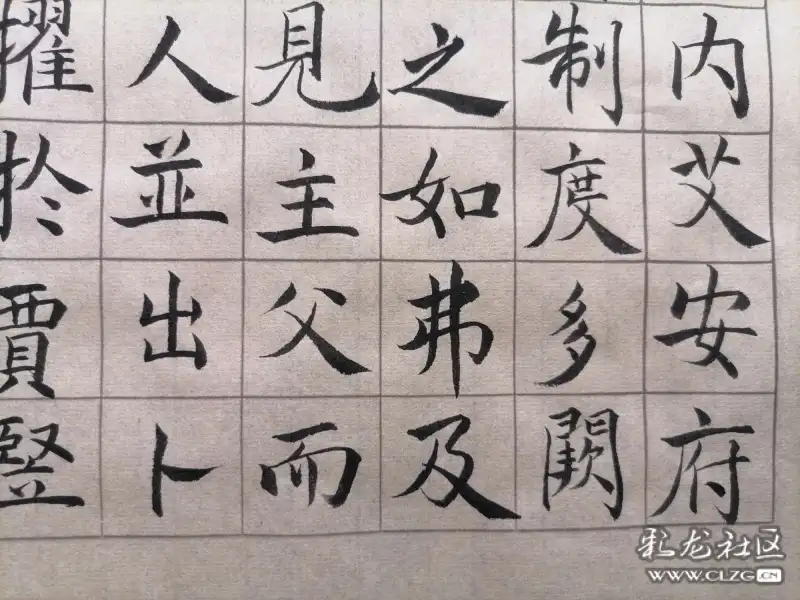 内艾安府
制度多闕
之如弗及
見主父而
人並出卜
擢於賈豎
彩龙社区
WWW.CLZG.CN